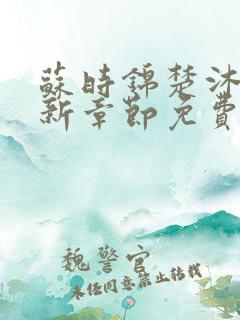 蘇時錦楚沐
新章節免費
魏警官
未经同意禁止转载